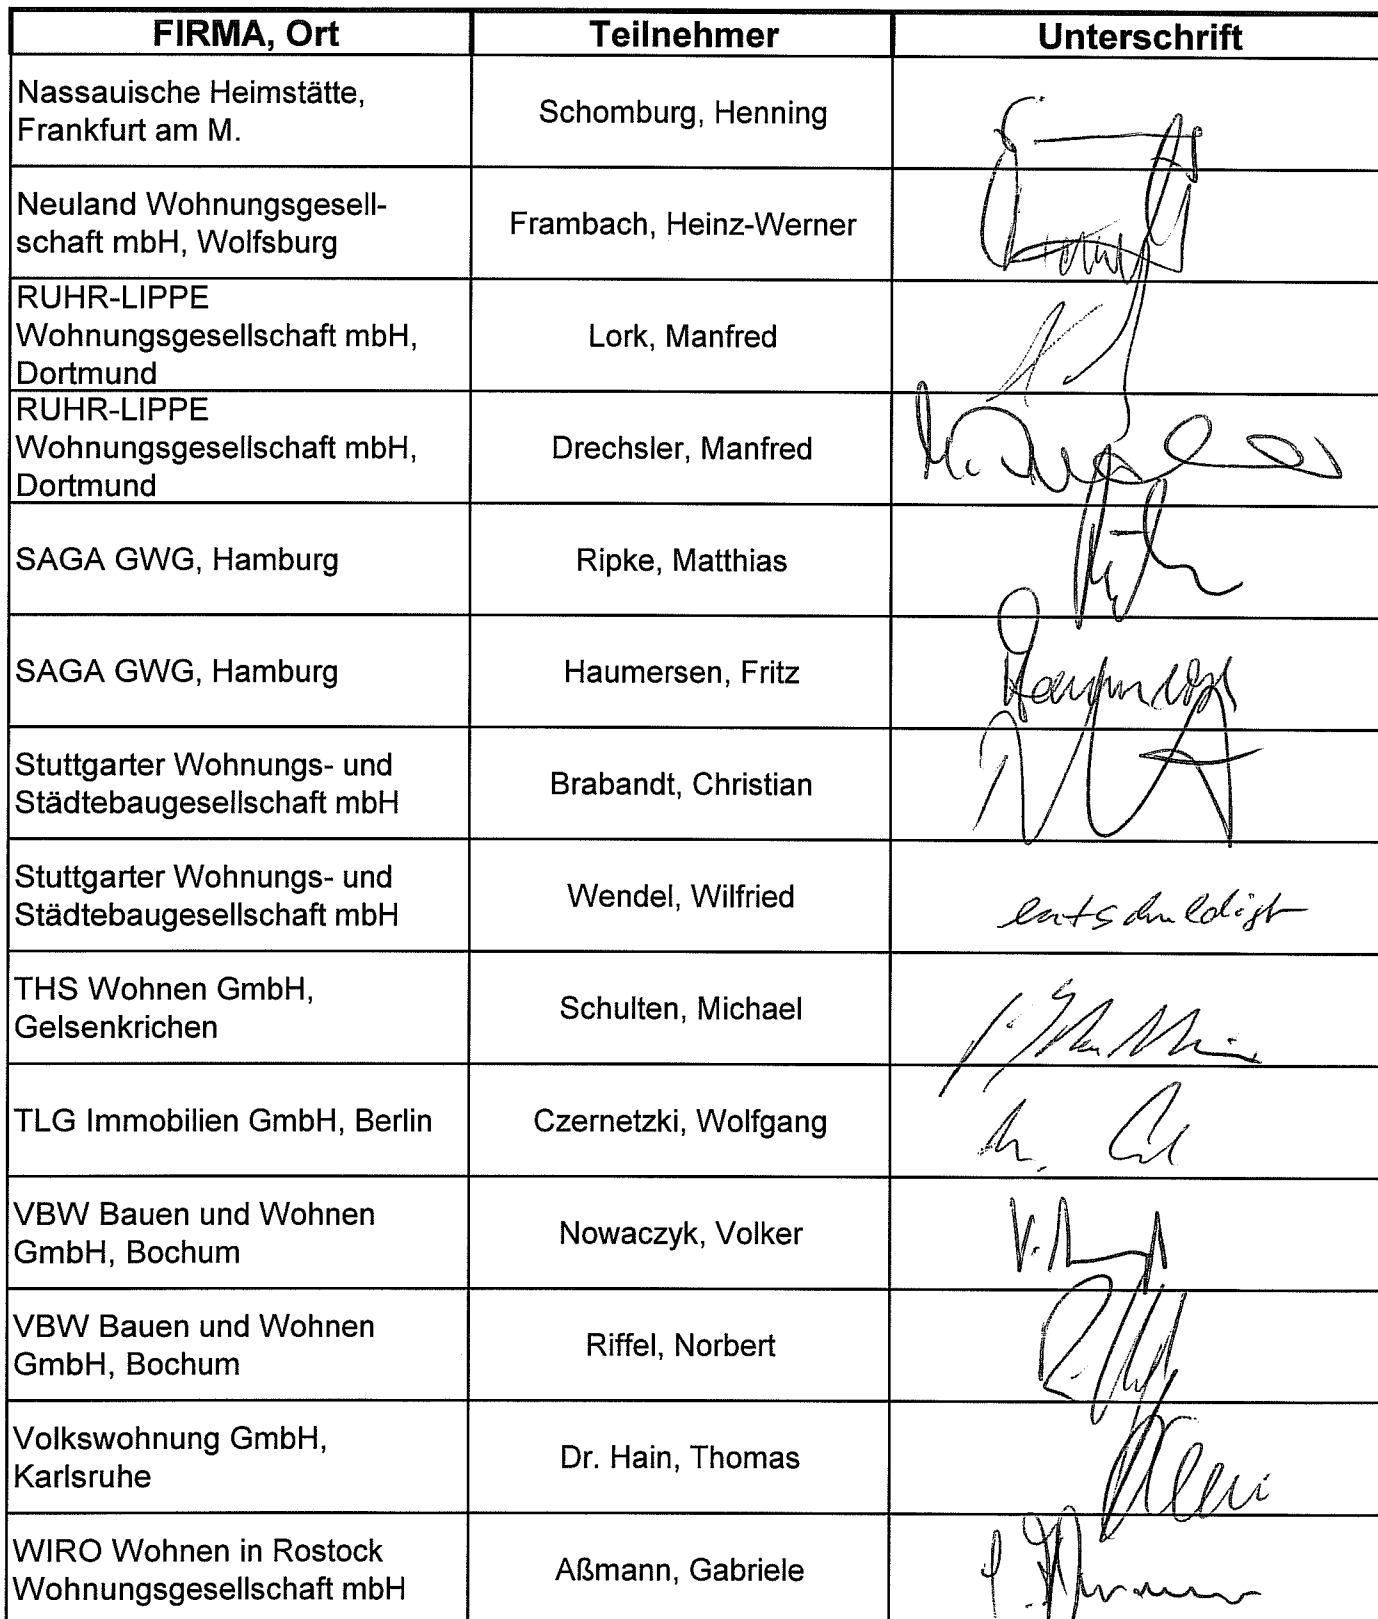 FIRMA, Ort Teilnehmer Unterschrift
Nassauische Heimstätte,
Frankfurt am M.
Schomburg, Henning
Neuland Wohnungsgesell-
schaft mbH, Wolfsburg
Frambach, Heinz-Werner
RUHR-LIPPE
Wohnungsgesellschaft mbH,
Dortmund
Lork, Manfred
RUHR-LIPPE
Wohnungsgesellschaft mbH,
Dortmund
Drechsler, Manfred
SAGA GWG, Hamburg
Ripke, Matthias
SAGA GWG, Hamburg
Haumersen, Fritz
Stuttgarter Wohnungs- und
Städtebaugesellschaft mbH
Brabandt, Christian
Stuttgarter Wohnungs- und
Städtebaugesellschaft mbH
Wendel, Wilfried
entschuldigt
THS Wohnen GmbH,
Gelsenkrichen
Schulten, Michael
TLG Immobilien GmbH, Berlin
Czernetzki, Wolfgang
VBW Bauen und Wohnen
GmbH, Bochum
Nowaczyk, Volker
VBW Bauen und Wohnen
GmbH, Bochum
Riffel, Norbert
Volkswohnung GmbH,
Karlsruhe
Dr. Hain, Thomas
WIRO Wohnen in Rostock
Wohnungsgesellschaft mbH
Aßmann, Gabriele